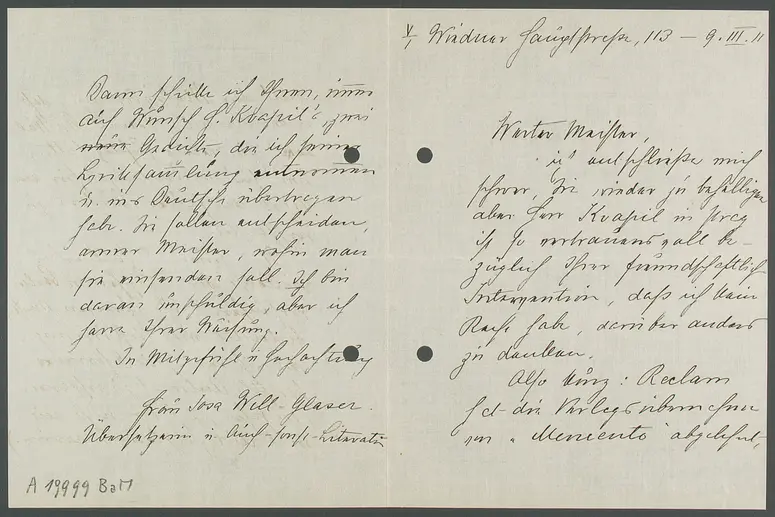 V/1 Wiedner Hauptstraße, 113 — 9. III. 11
Werter Meister,
ich entschließe mich
schwer, Sie wieder zu behelligen
aber Herr Kvapil in Prag
ist so vertrauensvoll be-
züglich Ihrer freundschaftlich
Intervention, daß ich kein
Recht habe, darüber anders
zu denken.
Also kurz: Reclam
hat die Verlagsübernahme
von „Memento" abgelehnt,
Dann schicke ich Ihnen, immer
auf Wunsch H. Kvapil's, zwei
neue Gedichte, die ich seiner
Lyriksammlung entnommen
u. ins Deutsche übertragen
habe. Sie sollen entscheiden,
armer Meister, wohin man
sie einsenden soll. Ich bin
daran unschuldig, aber ich
harre Ihrer Weisung.
In Mitgefühl u Hochachtung
Frau Josa Will-Glaser.
Übersetzerin u. Auch-sonst-Literatin
A 19999 BaM